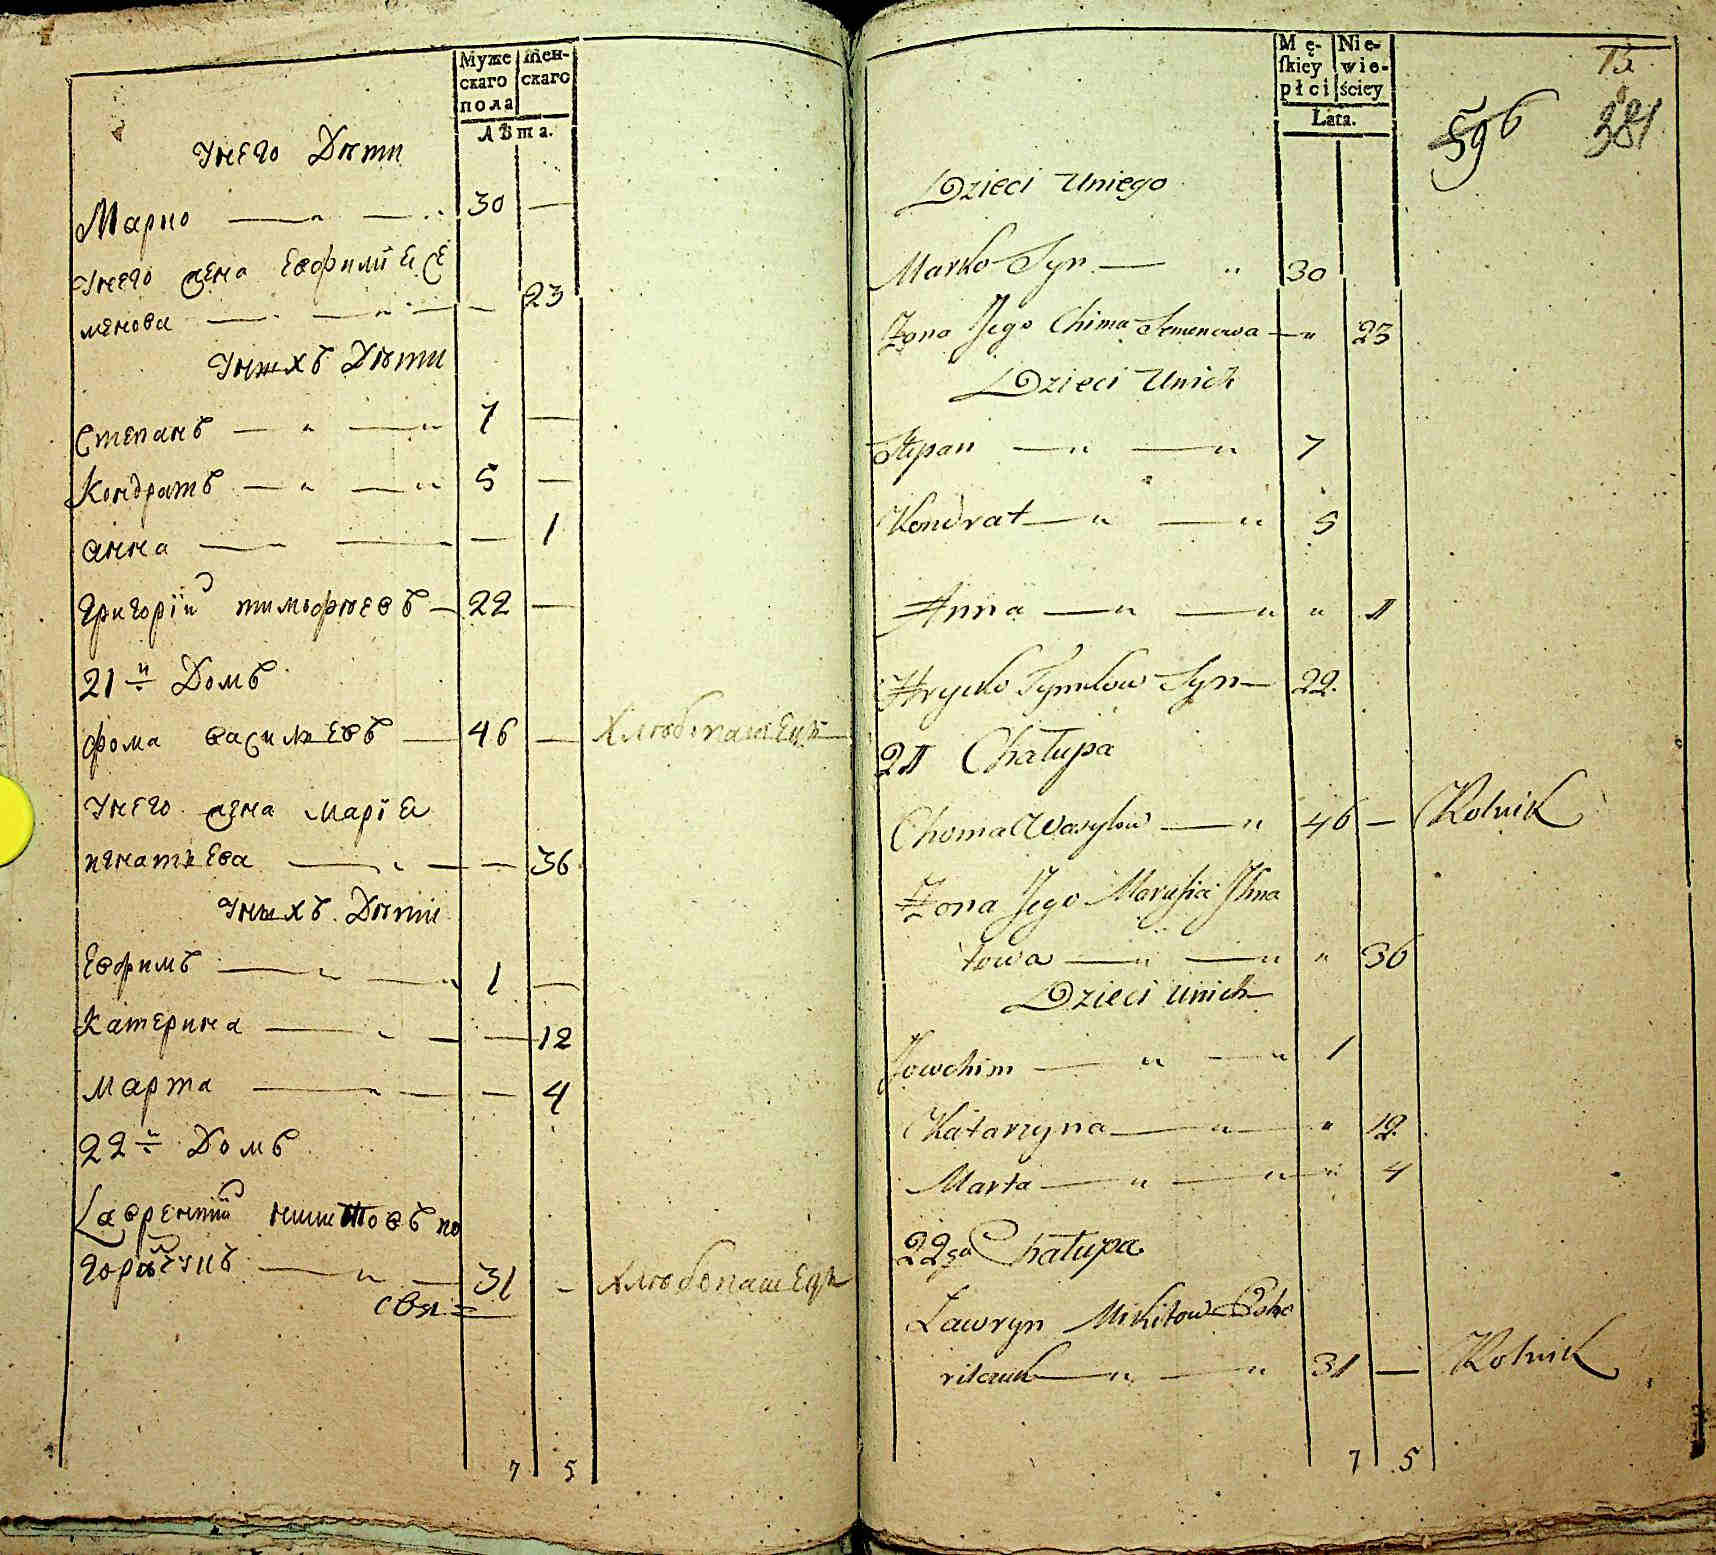 Муже
скаго
пола
Жен-
скаго
Лѣта.
Унего Дѣти
Марко 30 —
Унего жена Евфимїя Се
менова — 23
Унихъ Дѣти
Степанъ 7 —
Кондратъ 5 —
анна — 1
Григорїй тимофѣевъ — 22 —
21й Домъ
фома васильевъ — 46 — Хлѣбопашецъ
Унего жена марїя
игнатьева — 36
Унихъ Дѣти
Евфимъ 1 —
Катерина — 12
марта — 4
22й Домъ
Лаврентий никитовъ по
31 — Хлѣбопашецъ
7 5
Mę-
ſkiey
płci
Nie-
wie-
ściey
Lata.
13
596
381
Dzieci Uniego
Marko Syn — " 30
Zona Jego Chima Semenowa — " 23
Dzieci Unich
Stepan — " — " 7
Kondrat — " — " 5
Anna — " — " " 1
Hryćko Tymkow Syn — 22.
21 Chałupa
Choma Wasylow — " 46 — Rolnik
Zona Jego Marusia Ihna
towa — " — " " 36
Dzieci Unich
Jowchim — " — " 1
Katarzyna — " — " 12.
Marta — " — " " 4
22ga Chałupa
Ławryn Mikitow Poho
rilczuk — " — " 31 — Rolnik
7 5